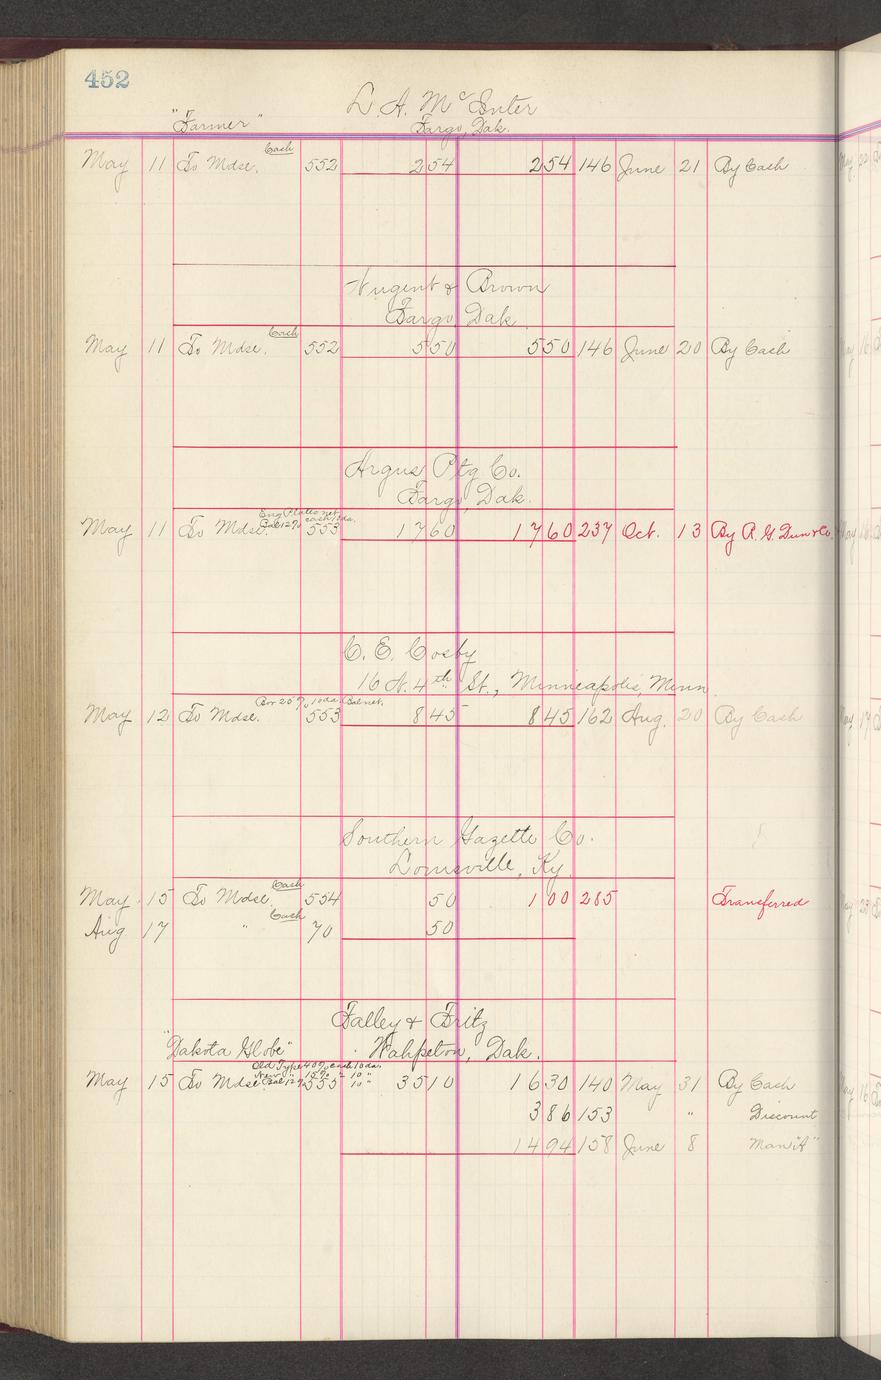 452
L. A. McInter
"Farmer" Fargo, Dak.
Cash
May 11 To Mdse. 552 2 54 2 54 146 June 21 By Cash
Nugent & Brown
Fargo, Dak.
Cash
May 11 To Mdse. 552 5 50 5 50 146 June 20 By Cash
Argus Ptg Co.
Fargo, Dak.
Eng Plates net
Bal 12% cash 10 da.
May 11 To Mdse. 553 17 60 17 60 237 Oct. 13 By R. G. Dun & Co.
C. E. Cosby
16 N. 4th St., Minneapolis, Minn.
Bor 20% 10 da. Bal net.
May 12 To Mdse. 553 8 45 8 45 162 Aug. 20 By Cash
Southern Gazette Co.
Louisville, Ky.
Cash
May 15 To Mdse. 554 50 1 00 285 Transferred
Cash
Aug 17 " 70 50
Falley & Fritz
"Dakota Globe" Wahpeton, Dak.
Old Type 40% cash 10 da.
New " 15% " 10 "
Bal 12% " 10 "
May 15 To Mdse. 555 35 10 16 30 140 May 31 By Cash
3 86 153 " Discount
14 94 158 June 8 Man "A"